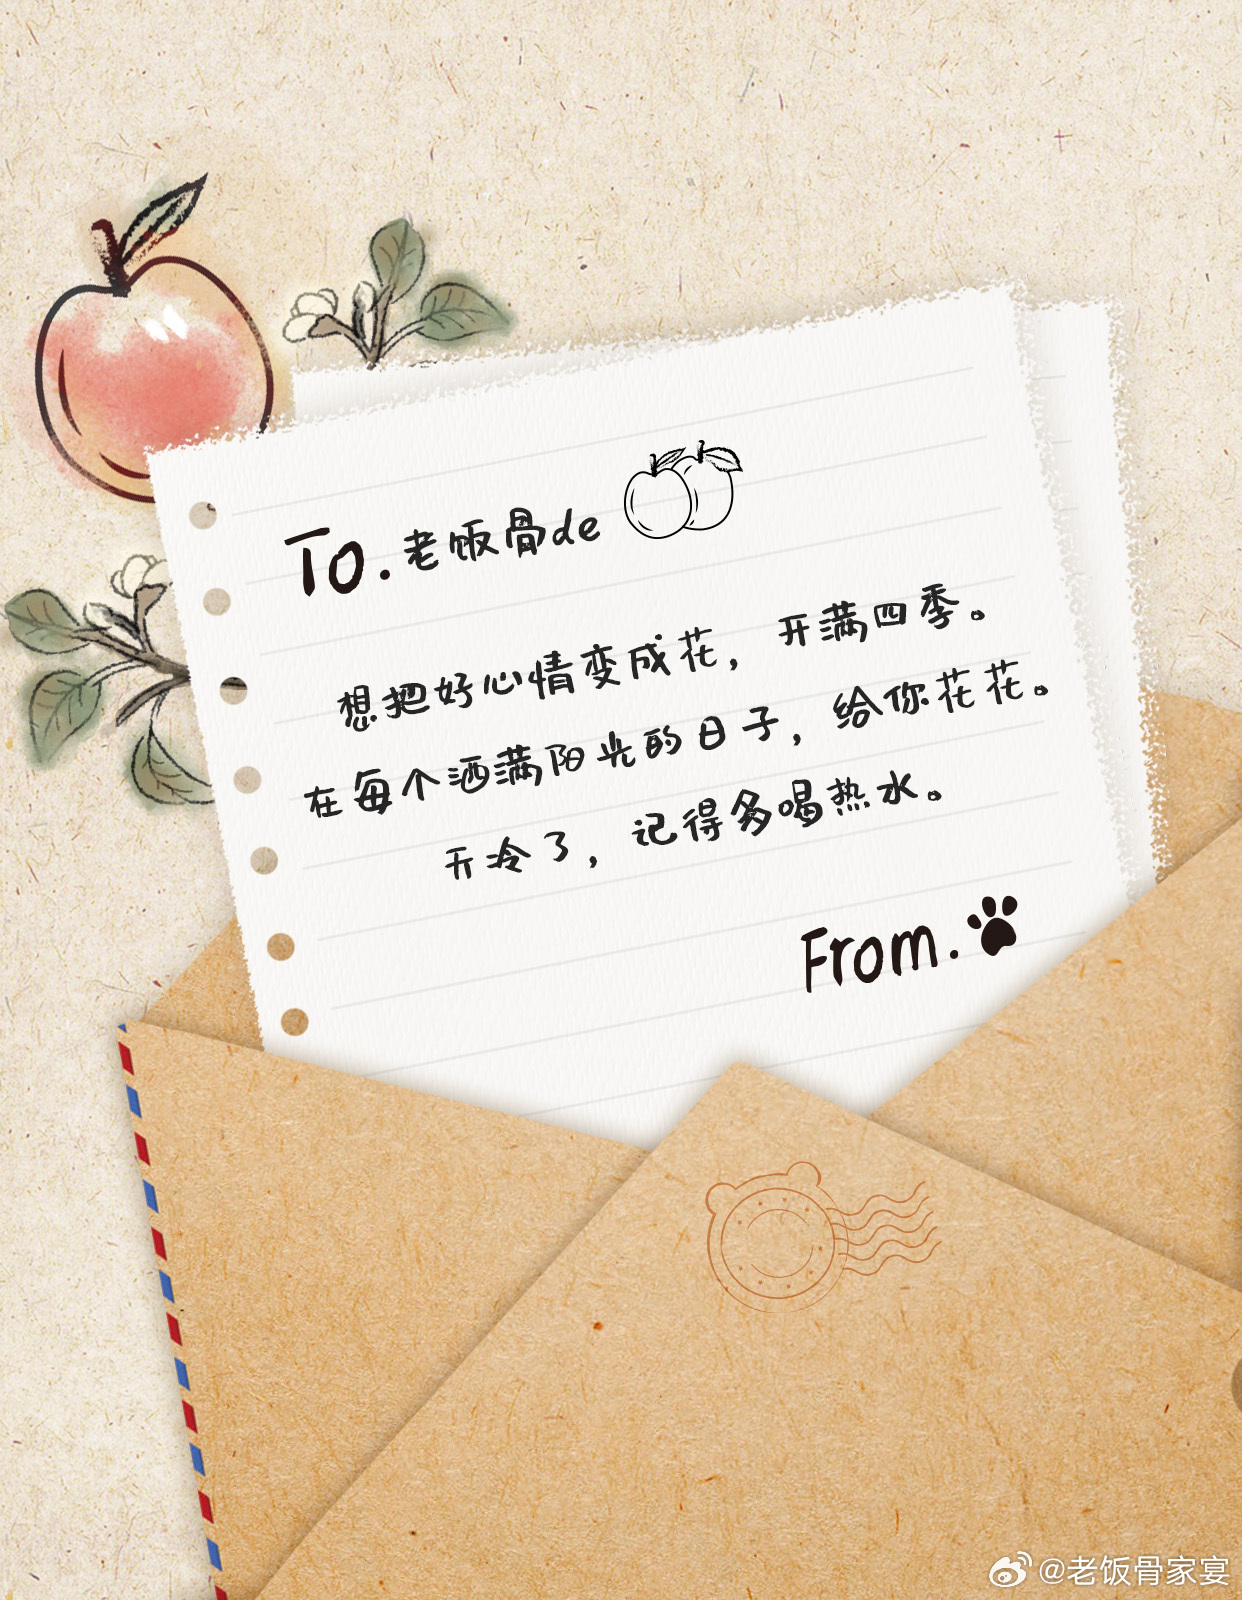 To.老饭骨de
想把好心情变成花，开满四季。
在每个洒满阳光的日子，给你花花。
天冷了，记得多喝热水。
From.
@老饭骨家宴